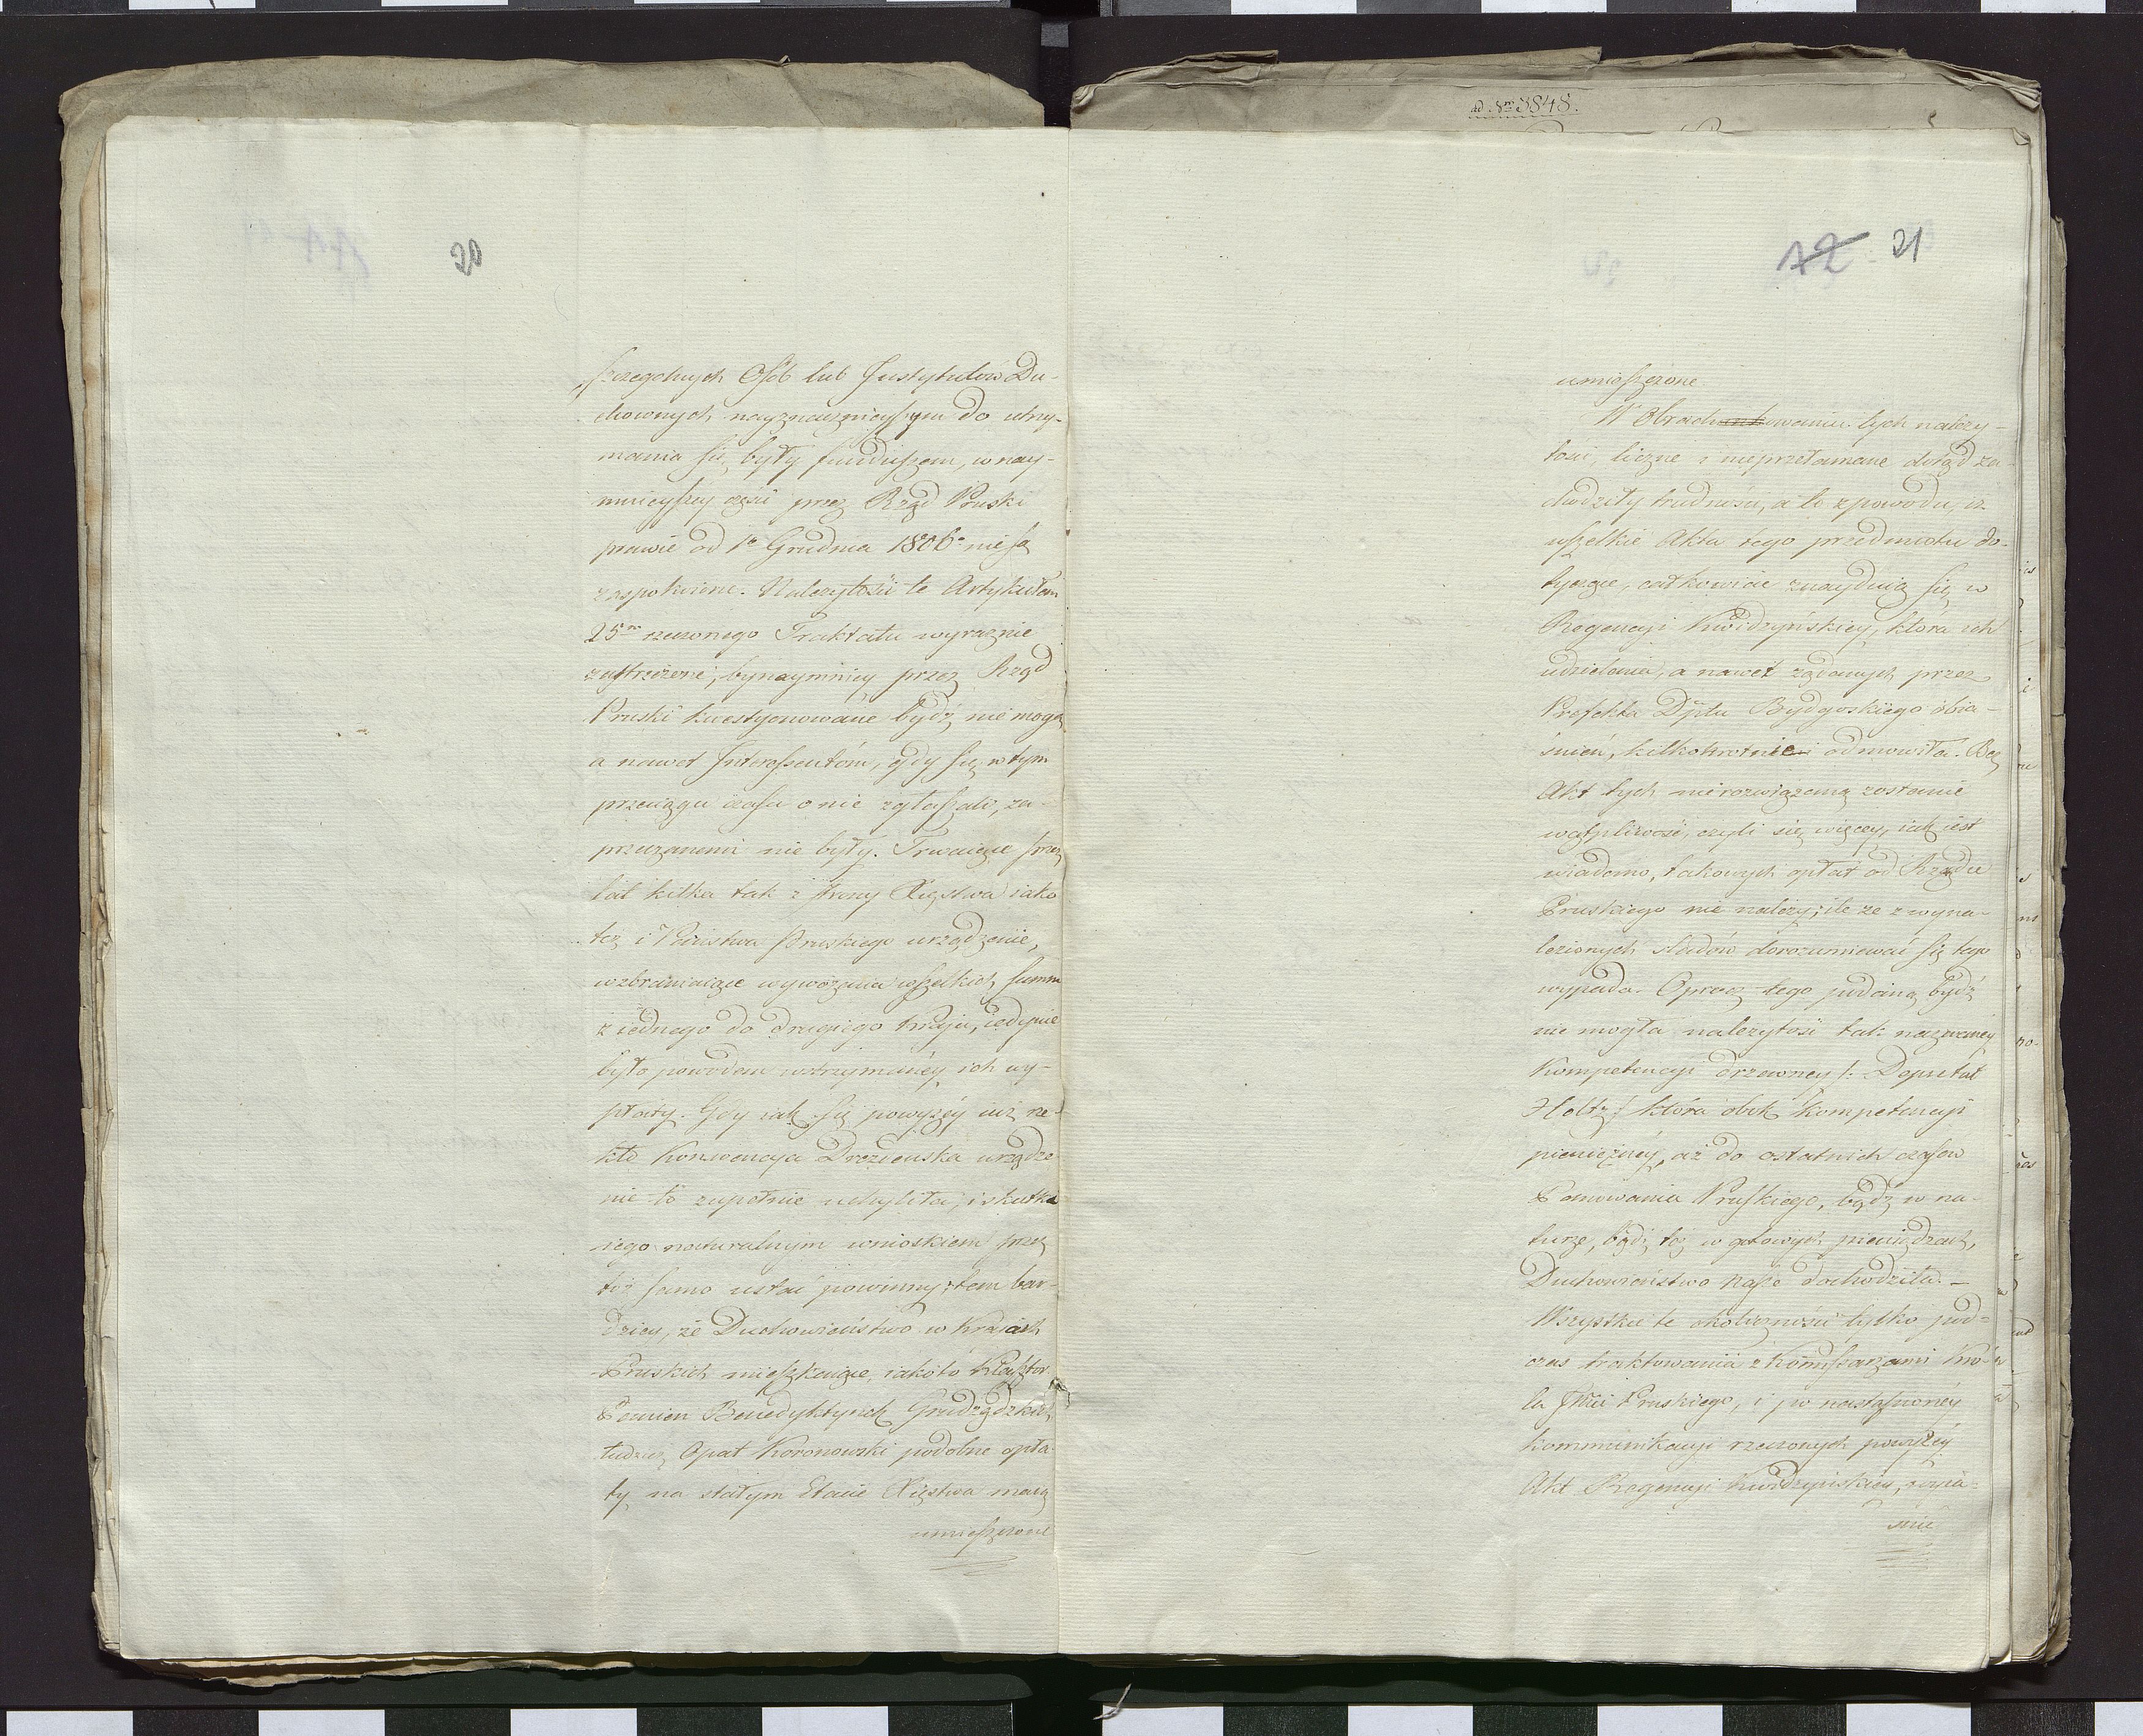 ad Nrm 3848.
20
szczegolnych Osób lub Instytutów Du-
chownych nayznacznieyszym do utrzy-
mania się były funduszem, w nay-
mnieyszey części przez Rząd Pruski
prawie od 1o Grudnia 1806o nie są
zaspokoione. Należytości te Artykułem
25m rzeczonego Traktatu wyraznie
zastrzeżone, bynaymniey przez Rząd
Pruski kwestyonowane bydź nie mogą
a nawet Interessentóm, gdy się w tym
przeciągu czasu o nie zgłaszali, za-
przeczanemi nie były. Trwaiące przez
lat kilka tak z strony Xięstwa iako
też i Państwa Pruskiego urządzenie,
wzbraniaiące wywożenia wszelkich summ
z iednego do drugiego kraju, iedynie
było powodem wstrzymaney ich wy-
płaty. Gdy iak się powyżéy iuż rze-
kło Konwencya Drezdeńska urządze
nie to zupełnie uchyliła, i skutka
iego naturalnym wnioskiem przez
toż samo ustać powinny; tem bar-
dziey, że Duchowieństwo w Kraiach
Pruskich mieszkaiące, iakoto Klasztor
Panien Benedyktynek Grudządzkich
tudzież Opat Koronowski podobne opła-
ty na stałym Etacie Xięstwa maią
umieszczone
12 21
umieszczone
W Obrachunkowaniu tych należy-
tości, liczne i nieprzełamane dotąd za-
chodziły trudności, a to z powodu, iż
wszelkie Akta tego przedmiotu do-
tyczące, całkowicie znayduią się w
Regencyi Kwidzyńskiey, ktora ich
udzielenia, a nawet żądanych przez
Prefekta Dptu Bydgoskiego obia-
śnień, kilkokrotnie odmowiła. Bez
Akt tych nierozwiązaną zostanie
wątpliwość, czyli się więcey, iak iest
wiadomo, takowych opłat od Rządu
Pruskiego nie należy; ile że z wyna-
lezionych sladów dorozumiewać się tego
wypada. Oprocz tego podaną bydź
nie mogła należytość tak nazwaney
Kompetencyi drzewney /: Deputat
Holtz :/ która obok kompetencyi
pienięźnéy, aż do ostatnich czasów
Panowania Pruskiego, bądź w na-
turze, bądź też w gotowych pieniądzach,
Duchowieństwo nasze dochodziła. -
Wszystkie te okoliczności tylko pod-
czas traktowania z Kommissarzami Kró-
la JMci Pruskiego, i po nastąpionéy
kommunikacyi rzeczonych powyżéy
Akt Regencyi Kwidzyńskiey, wyia-
śnić